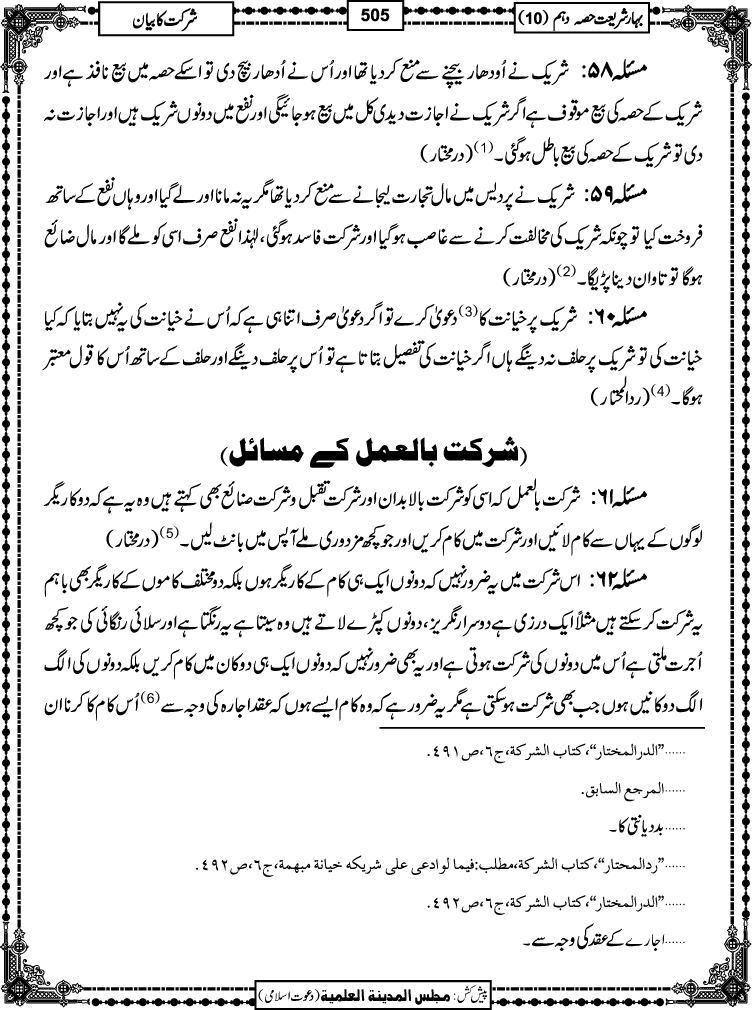 بہار شریعت حصہ دہم (10)
505
شرکت کا بیان
مسئلہ ۵۸: شریک نے اُودھار بیچنے سے منع کر دیا تھا اور اُس نے اُدھار بیچ دی تو اسکے حصہ میں بیع نافذ ہے اور
شریک کے حصہ کی بیع موقوف ہے اگر شریک نے اجازت دیدی کل میں بیع ہو جائیگی اور نفع میں دونوں شریک ہیں اور اجازت نہ
دی تو شریک کے حصہ کی بیع باطل ہوگئی۔(1) (درمختار)
مسئلہ ۵۹: شریک نے پردیس میں مال تجارت لیجانے سے منع کر دیا تھا مگر یہ نہ مانا اور لے گیا اور وہاں نفع کے ساتھ
فروخت کیا تو چونکہ شریک کی مخالفت کرنے سے غاصب ہو گیا اور شرکت فاسد ہوگئی، لہٰذا نفع صرف اسی کو ملے گا اور مال ضائع
ہوگا تو تاوان دینا پڑیگا۔(2) (درمختار)
مسئلہ ۶۰: شریک پر خیانت کا(3) دعویٰ کرے تو اگر دعویٰ صرف اتنا ہی ہے کہ اُس نے خیانت کی یہ نہیں بتایا کہ کیا
خیانت کی تو شریک پر حلف نہ دینگے ہاں اگر خیانت کی تفصیل بتاتا ہے تو اُس پر حلف دینگے اور حلف کے ساتھ اُس کا قول معتبر
ہوگا۔(4) (ردالمحتار)
(شرکت بالعمل کے مسائل)
مسئلہ ۶۱: شرکت بالعمل کہ اسی کو شرکت بالابدان اور شرکت تقبل و شرکت صنائع بھی کہتے ہیں وہ یہ ہے کہ دو کاریگر
لوگوں کے یہاں سے کام لائیں اور شرکت میں کام کریں اور جو کچھ مزدوری ملے آپس میں بانٹ لیں۔(5) (درمختار)
مسئلہ ۶۲: اس شرکت میں یہ ضرور نہیں کہ دونوں ایک ہی کام کے کاریگر ہوں بلکہ دو مختلف کاموں کے کاریگر بھی باہم
یہ شرکت کر سکتے ہیں مثلاً ایک درزی ہے دوسرا رنگریز، دونوں کپڑے لاتے ہیں وہ سیتا ہے یہ رنگتا ہے اور سلائی رنگائی کی جو کچھ
اُجرت ملتی ہے اُس میں دونوں کی شرکت ہوتی ہے اور یہ بھی ضرور نہیں کہ دونوں ایک ہی دوکان میں کام کریں بلکہ دونوں کی الگ
الگ دوکانیں ہوں جب بھی شرکت ہو سکتی ہے مگر یہ ضرور ہے کہ وہ کام ایسے ہوں کہ عقد اجارہ کی وجہ سے(6) اُس کام کا کرنا ان
......”الدرالمختار“، کتاب الشرکة، ج٦، ص٤٩١.
......المرجع السابق.
......بددیانتی کا۔
......”ردالمحتار“، کتاب الشرکة، مطلب: فیما لوادعی علی شریکه خیانة مبهمة، ج٦، ص٤٩٢.
......”الدرالمختار“، کتاب الشرکة، ج٦، ص٤٩٢.
......اجارے کے عقد کی وجہ سے۔
پیش کش: مجلس المدینة العلمیة (دعوت اسلامی)